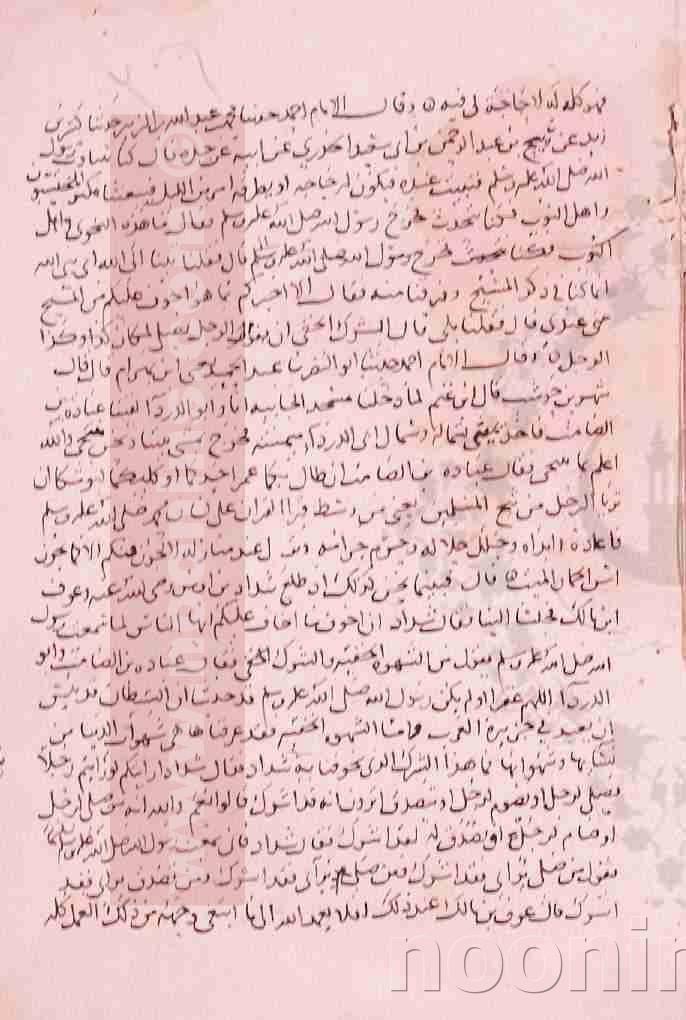 فهو كله له لا حاجة لي فيه ه وقال الامام احمد حدثنا محمد بن عبد الله بن الزبير حدثنا كثير بن
زيد عن ربيح بن عبد الرحمن بن ابى سعيد الخدري عن ابيه عن جده قال كنا نتناوب رسول
الله صلى الله عليه وسلم فنبيت عنده يكون له حاجة او يطرقه امر من الليل فيبعثنا فكثر المحتسبون
واهل النوب فكنا نتحدث فخرج رسول الله صلى الله عليه وسلم فقال ما هذه النجوى
قال فقلنا تبنا الى الله اى نبى الله
انما كنا فى ذكر المسيح وفرقنا منه فقال الا اخبركم بما هو اخوف عليكم من المسيح
عندى قال قلنا بلى قال الشرك الخفى ان يقوم الرجل يصلى لمكان
الرجل ه وقال الامام احمد حدثنا ابو النضر ثنا عبد الحميد يعنى ابن بهرام قال قال
شهر بن حوشب قال ابن غنم لما دخلنا مسجد الجابيه انا وابو الدرداء لقينا عباده بن
الصامت فاخذ يمينى بشماله وشمال ابى الدرداء بيمينه فخرج يمشى بيننا ونحن نتناجى والله
اعلم بما نتناجى فقال عباده بن الصامت ان طال بكما عمر احدكما او كليكما لتوشكان ان
تريا الرجل من ثبج المسلمين يعنى من وسط قرا القران على لسان محمد صلى الله عليه وسلم
فاعاده وابداه واحل حلاله وحرم حرامه ونزل عند منازله لا يحور فيكم الا كما يحور
راس الحمار الميت ه قال فبينما نحن كذلك اذ طلع شداد بن اوس رضى الله عنه وعوف
ابن مالك فجلسا الينا فقال شداد ان اخوف ما اخاف عليكم ايها الناس لما سمعت رسول
الله صلى الله عليه وسلم يقول من الشهوه الخفيه والشرك الخفى فقال عباده بن الصامت وابو
الدرداء اللهم غفرا اولم يكن رسول الله صلى الله عليه وسلم قد حدثنا ان الشيطان قد يئس
ان يعبد فى جزيرة العرب واما الشهوه الخفيه فقد عرفناها هى شهوات الدنيا من
نسائها وشهواتها فما هذا الشرك الذى تخوفنا به يا شداد فقال شداد ارايتكم لو رايتم رجلا
يصلى لرجل او يصوم لرجل او يتصدق اترون انه قد اشرك قالوا نعم والله انه من صلى لرجل
او صام لرجل او تصدق له لقد اشرك فقال شداد فانى سمعت رسول الله صلى الله عليه وسلم
يقول من صلى يرائى فقد اشرك ومن صام يرائى فقد اشرك ومن تصدق يرائى فقد
اشرك قال عوف بن مالك عند ذلك افلا يعمد الله الى ما ابتغى وجهه من ذلك العمل كله
noonir